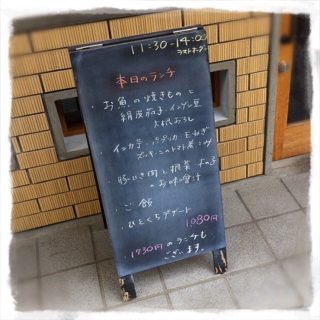 11:30-14:00
ラストオーダー
本日のランチ
・お魚の焼きものと
絹皮茄子 インゲン豆
大根おろし
・インカ芋 パプリカ 玉ねぎ
ズッキーニのトマト煮こみ
・豚ひき肉と根菜
のお味噌汁
・ご飯
・ひとくちデザート
1080円
・1730円のランチも
ございます。